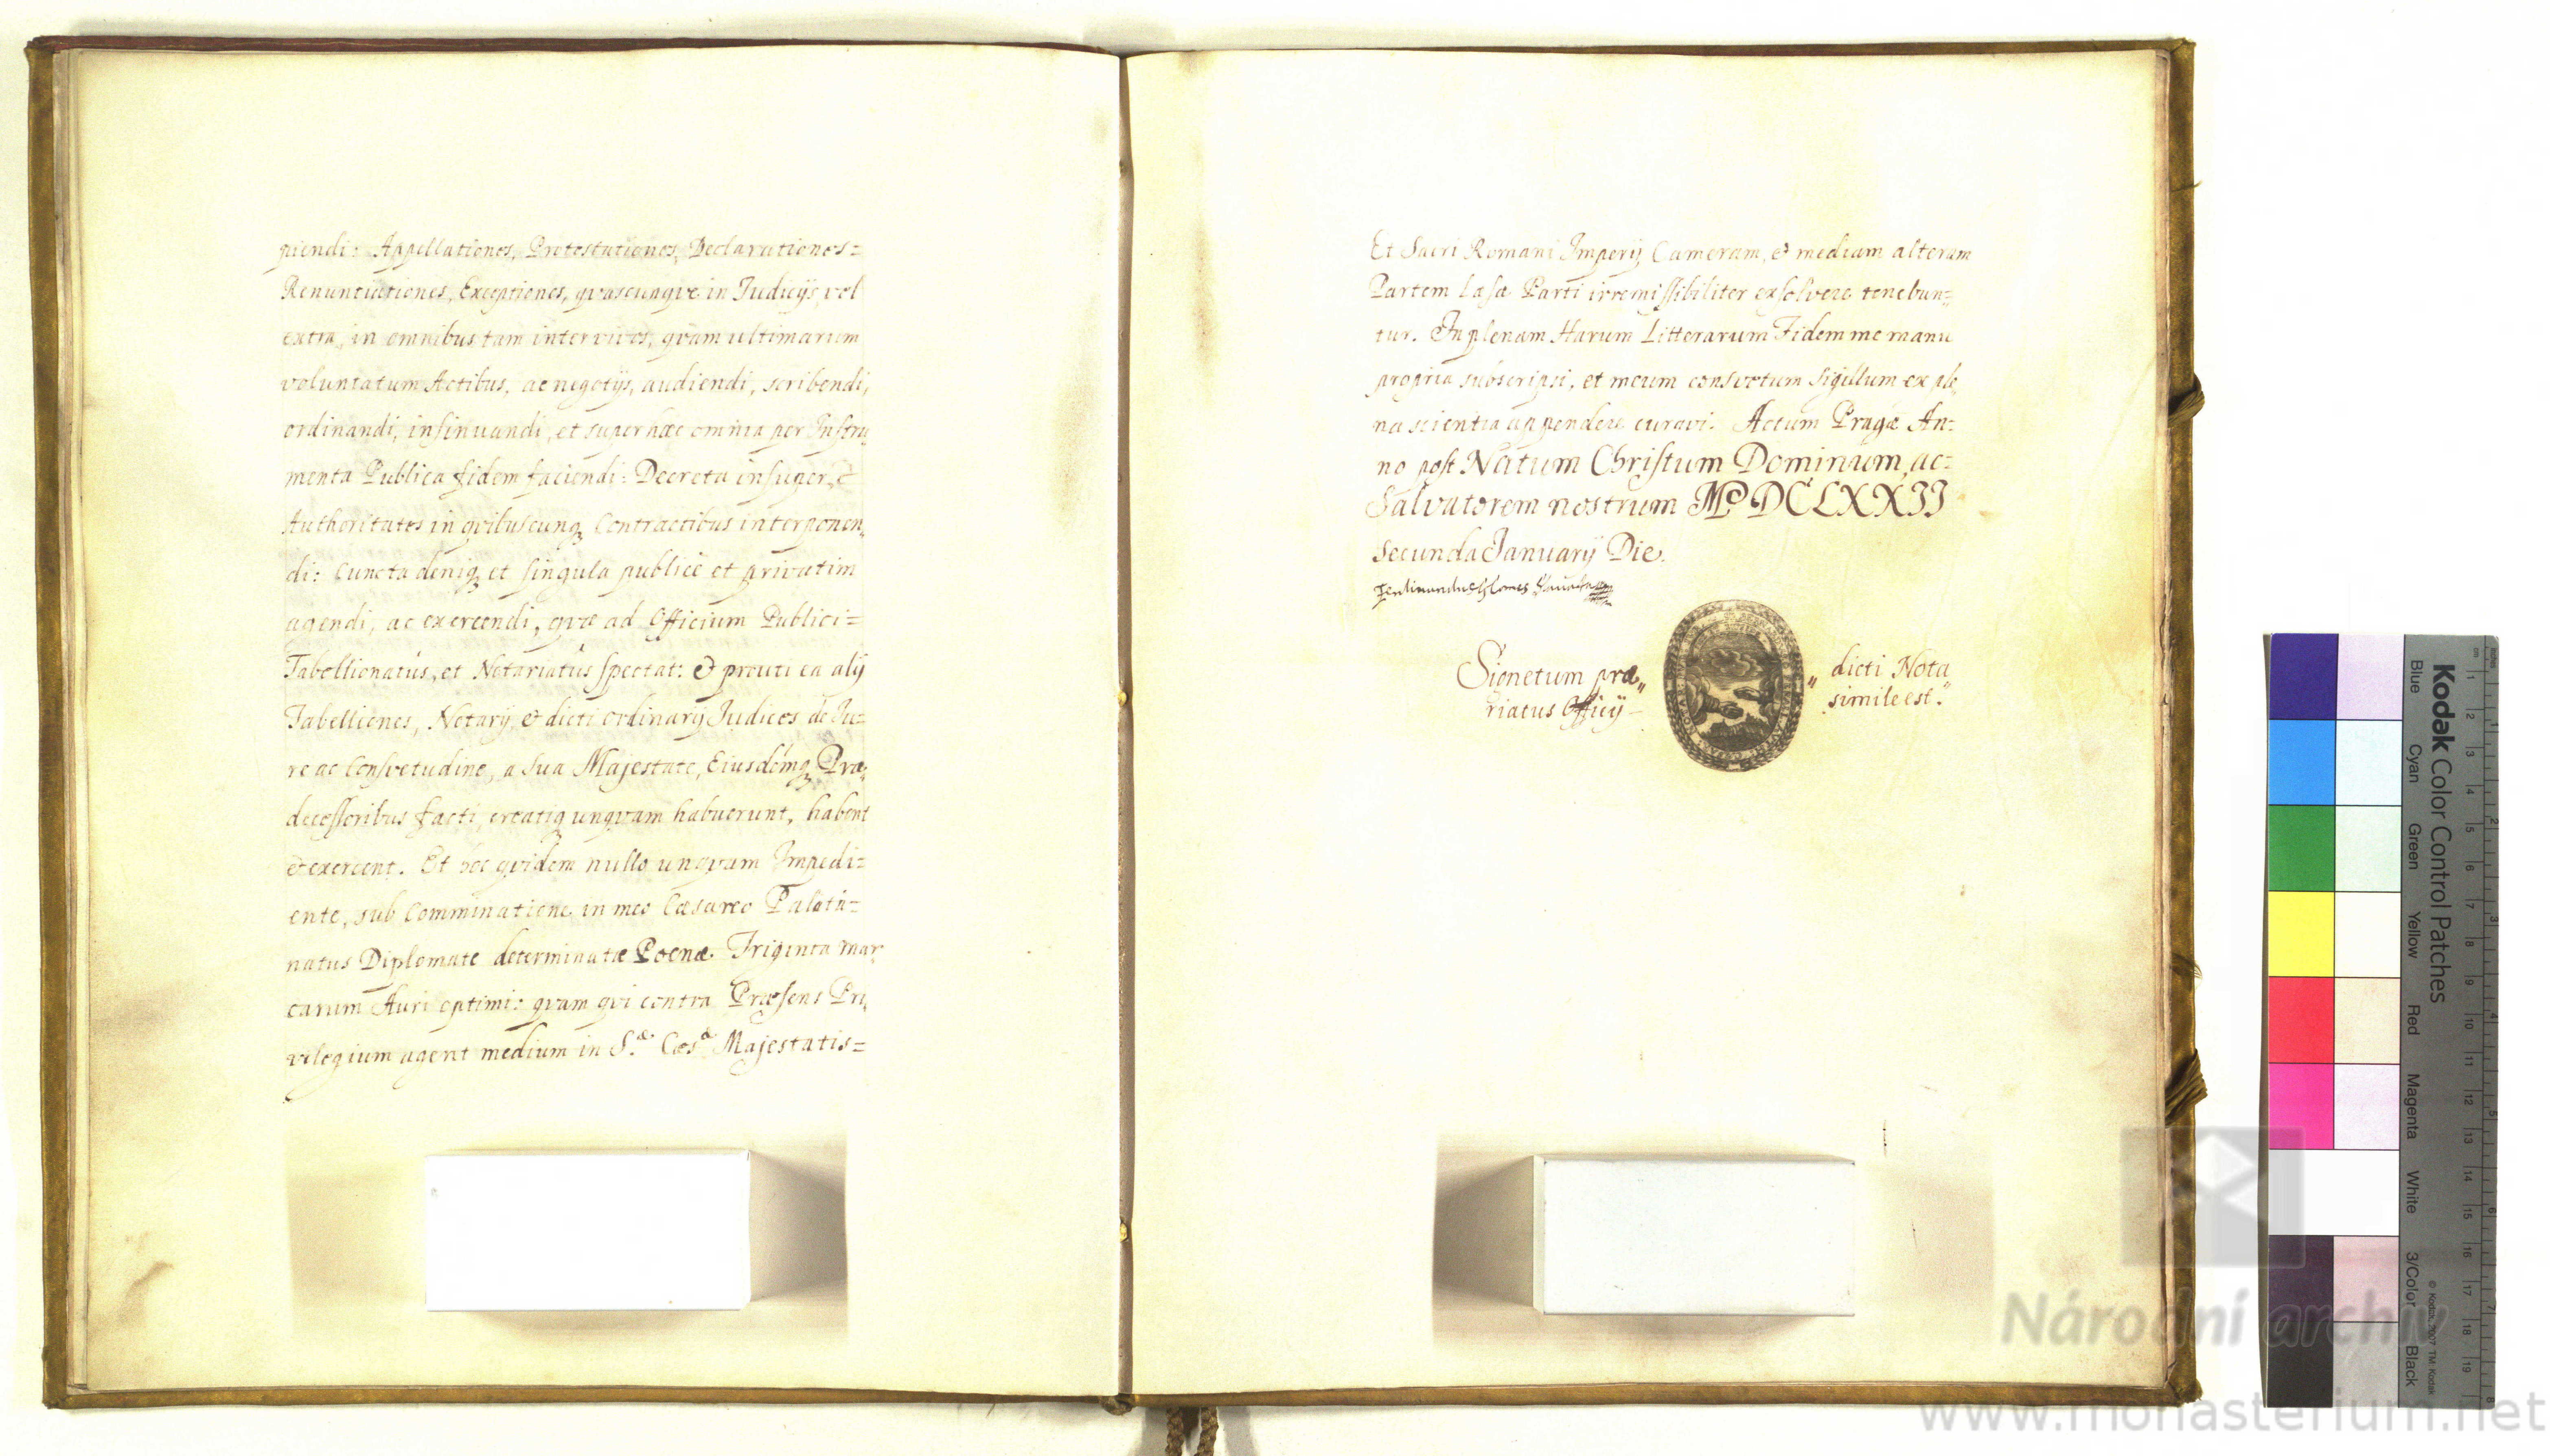 piendi: Appellationes, Protestationes, Declarationes=
Renuntiationes, Exceptiones, qvascunqve in Judicijs, vel
extra, in omnibus tam inter vivos, qvam ultimarum
voluntatum Actibus, ac negotijs, audiendi, scribendi,
ordinandi, insinuandi, et super hæc omnia per Instru
menta Publica fidem faciendi: Decreta insuper, &
Authoritates in qvibuscunq; Contractibus interponen,
di: Cuncta deniq; et singula publicè et privatim
agendi, ac exercendi, qvæ ad Officium Publici=
Tabellionatûs, et Notariatûs spectat: & prouti ea alij
Tabelliones, Notarij, & dicti ordinarij Judices de Ju=
re ac Consvetudine, a Sua Majestate, Eiusdémq; Præ,
decessoribus facti, creatiq; unqvam habuerunt, habent
et exercent. Et hoc qvidem nullo unqvam Impedi=
ente, sub Comminatione in meo Cæsareo Palati=
natus Diplomate determinatæ Poenæ Triginta mar
carum Auri optimi: qvam qvi contra Præsens Pri,
vilegium agent mediam in S.æ Cæs.æ Majestatis=
Et Sacri Romani Imperij Cameram, et mediam alteram
Partem Læsæ Parti irremissibiliter exsolvere tenebun=
tur. In plenam Harum Litterarum Fidem me manu
propria subscripsi, et meum consvetum Sigillum ex ple
na scientia appendere curavi. Actum Pragæ An=
no post Natum Christum Dominum, ac=
Salvatorem nostrum MDCLXXII
Secunda January Die.
Sionetum præ,, ,, dicti Nota
riatus Officij simile est.
Kodak Color Control Patches
Blue Cyan Green Yellow Red Magenta White 3/Color Black
© Kodak, 2007 TM: Kodak
Národní archiv
www.monasterium.net